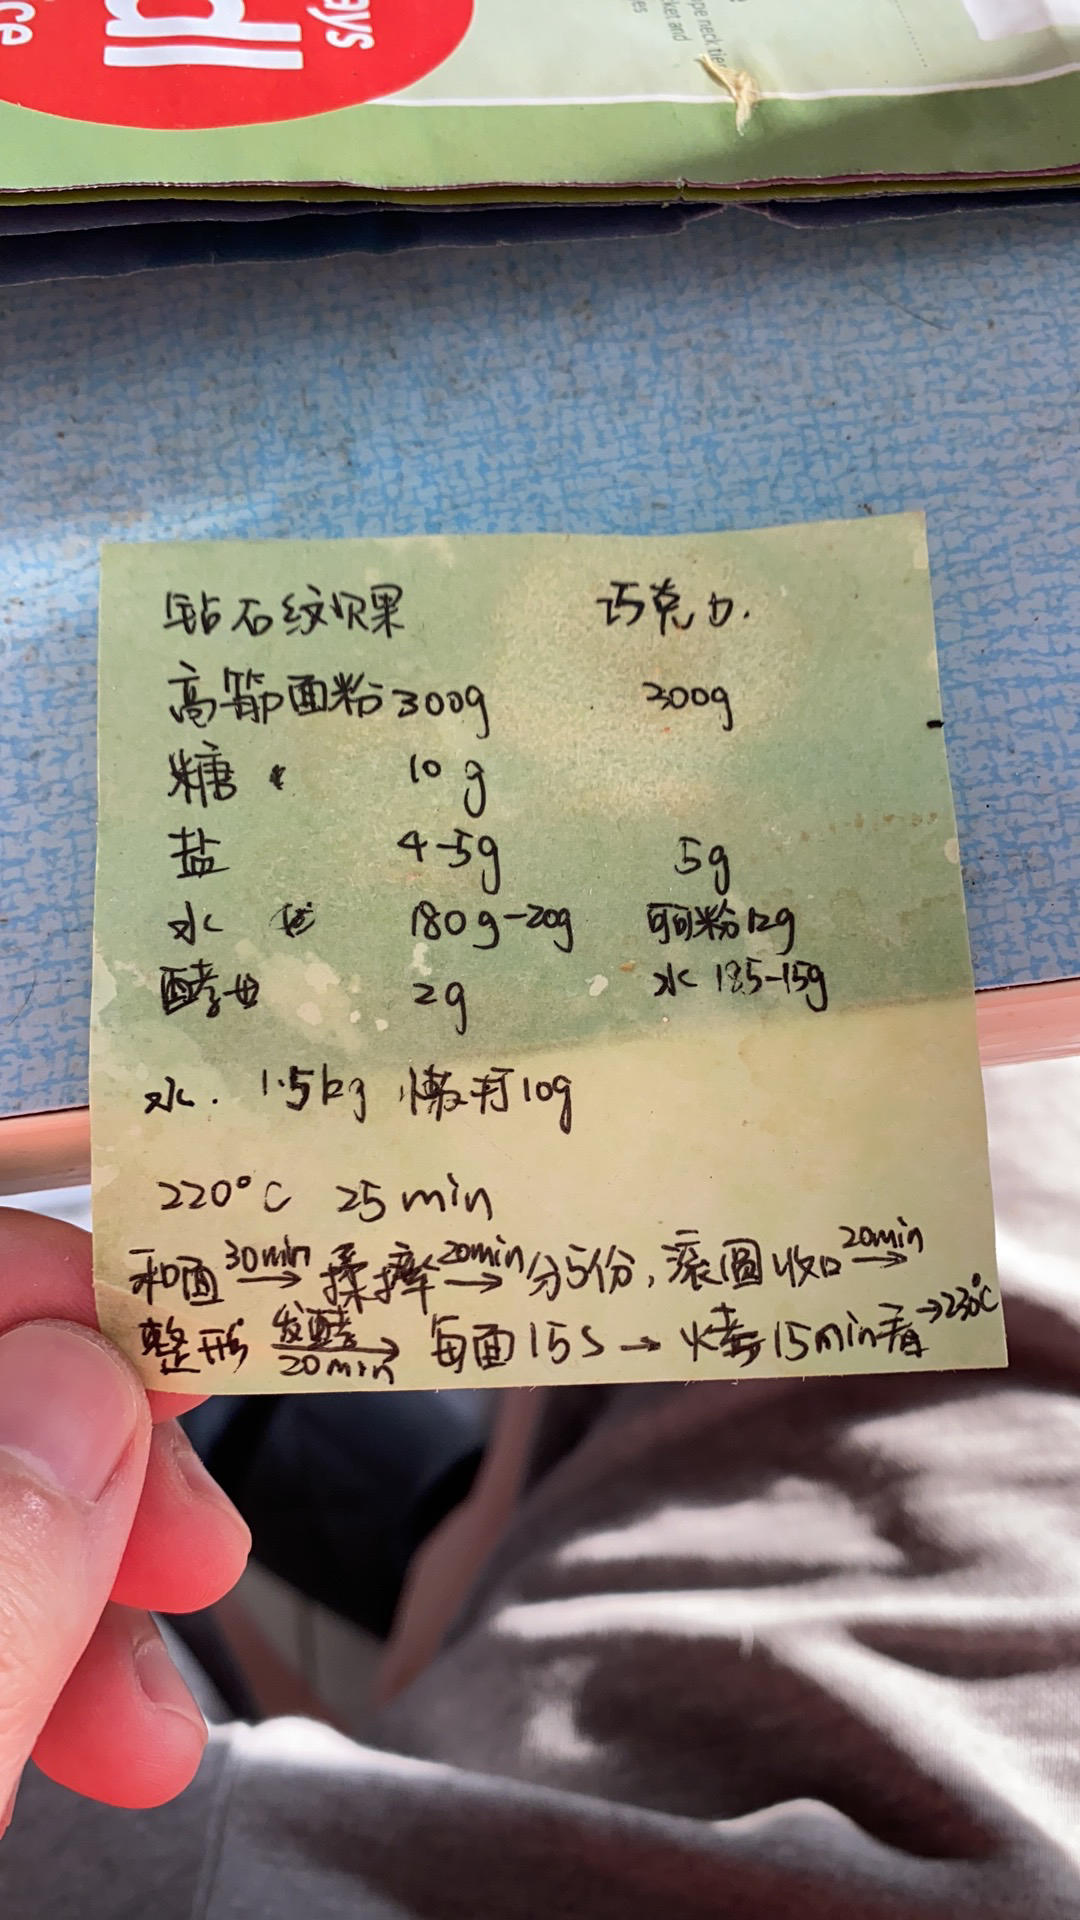 ays
dl
ice
pe neck tier
ket and
es
钻石纹贝果 巧克力.
高筋面粉 300g 300g
糖 10g
盐 4-5g 5g
水 180g-20g 可可粉 12g
酵母 2g 水 185-15g
水. 1.5kg 10g
220°C 25min
和面 30min→ 揉 20min→ 分5份, 滚圆收口 20min→
整形 发酵 20min→ 每面15s→烤15min看→230°C